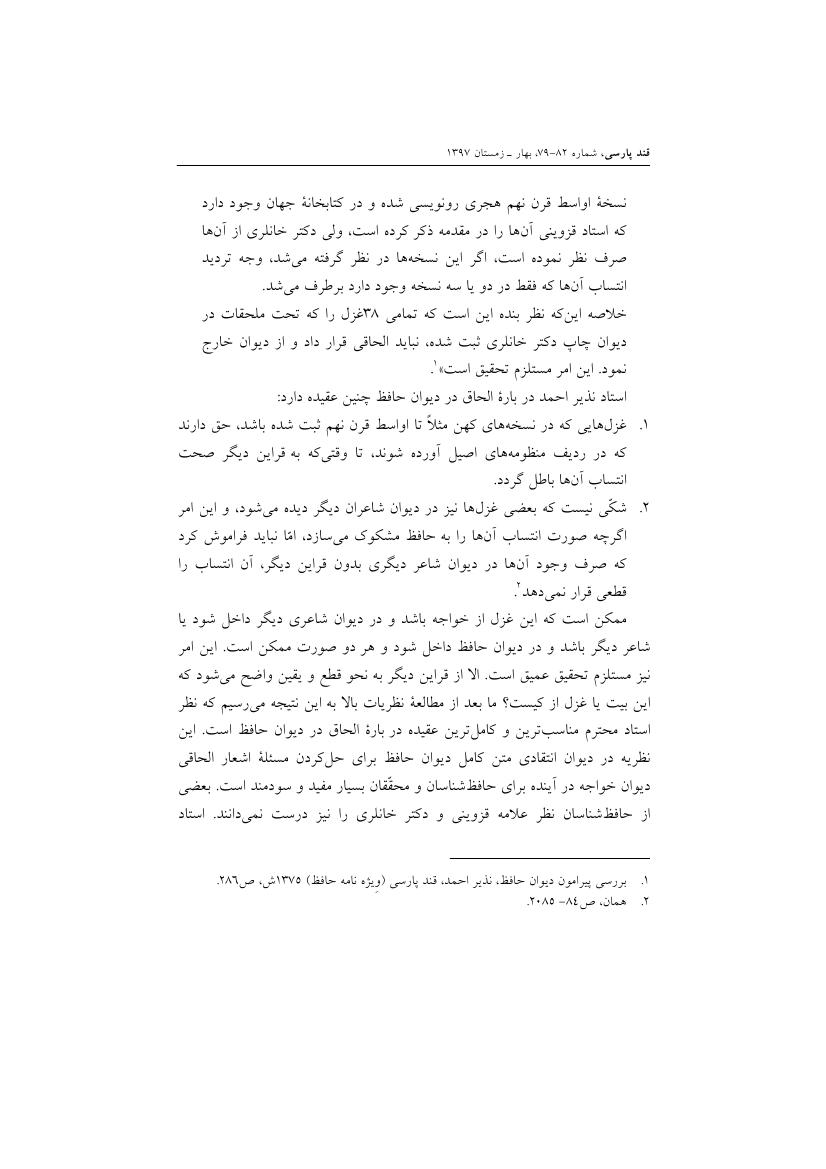 قند پارسی، شماره ۸۲-۷۹، بهار ـ زمستان ۱۳۹۷
نسخهٔ اواسط قرن نهم هجری رونویسی شده و در کتابخانهٔ جهان وجود دارد
که استاد قزوینی آن‌ها را در مقدمه ذکر کرده است، ولی دکتر خانلری از آن‌ها
صرف نظر نموده است، اگر این نسخه‌ها در نظر گرفته می‌شد، وجه تردید
انتساب آن‌ها که فقط در دو یا سه نسخه وجود دارد برطرف می‌شد.
خلاصه این‌که نظر بنده این است که تمامی ۳۸غزل را که تحت ملحقات در
دیوان چاپ دکتر خانلری ثبت شده، نباید الحاقی قرار داد و از دیوان خارج
نمود. این امر مستلزم تحقیق است»۱.
استاد نذیر احمد در بارهٔ الحاق در دیوان حافظ چنین عقیده دارد:
۱. غزل‌هایی که در نسخه‌های کهن مثلاً تا اواسط قرن نهم ثبت شده باشد، حق دارند
که در ردیف منظومه‌های اصیل آورده شوند، تا وقتی‌که به قراین دیگر صحت
انتساب آن‌ها باطل گردد.
۲. شکّی نیست که بعضی غزل‌ها نیز در دیوان شاعران دیگر دیده می‌شود، و این امر
اگرچه صورت انتساب آن‌ها را به حافظ مشکوک می‌سازد، امّا نباید فراموش کرد
که صرف وجود آن‌ها در دیوان شاعر دیگری بدون قراین دیگر، آن انتساب را
قطعی قرار نمی‌دهد۲.
ممکن است که این غزل از خواجه باشد و در دیوان شاعری دیگر داخل شود یا
شاعر دیگر باشد و در دیوان حافظ داخل شود و هر دو صورت ممکن است. این امر
نیز مستلزم تحقیق عمیق است. الا از قراین دیگر به نحو قطع و یقین واضح می‌شود که
این بیت یا غزل از کیست؟ ما بعد از مطالعهٔ نظریات بالا به این نتیجه می‌رسیم که نظر
استاد محترم مناسب‌ترین و کامل‌ترین عقیده در بارهٔ الحاق در دیوان حافظ است. این
نظریه در دیوان انتقادی متن کامل دیوان حافظ برای حل‌کردن مسئلهٔ اشعار الحاقی
دیوان خواجه در آینده برای حافظ‌شناسان و محقّقان بسیار مفید و سودمند است. بعضی
از حافظ‌شناسان نظر علامه قزوینی و دکتر خانلری را نیز درست نمی‌دانند. استاد
۱. بررسی پیرامون دیوان حافظ، نذیر احمد، قند پارسی (ویژه نامه حافظ) ۱۳۷۵ش، ص۲۸۶.
۲. همان، ص۸۴- ۲۰۸۵.